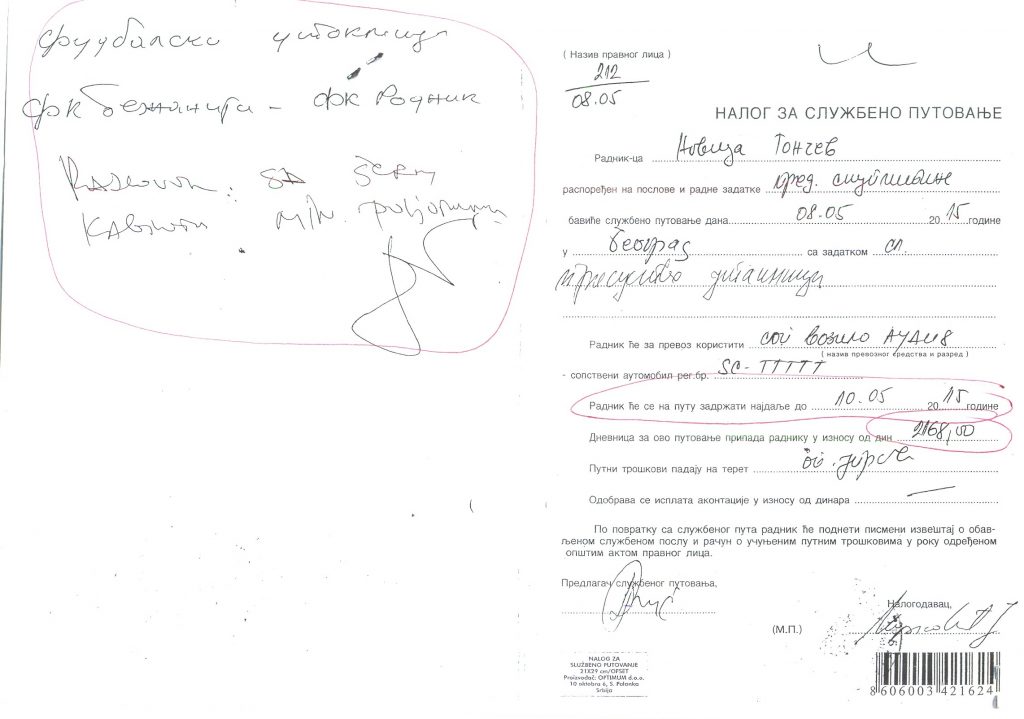 фудбалске утакмице
ФК Бежанија - ФК Радник
( Назив правног лица )
212
08.05
НАЛОГ ЗА СЛУЖБЕНО ПУТОВАЊЕ
Радник-ца Новица Тончев
распоређен на послове и радне задатке пред. скупштине
бавиће службено путовање дана 08.05 2015 године
у Београд са задатком сл.
присуство утакмици
Радник ће за превоз користити соп возило АУДИ 8
( назив превозног средства и разред )
- сопствени аутомобил рег.бр. SC- TTTTT
Радник ће се на путу задржати најдаље до 10.05 2015 године
Дневница за ово путовање припада раднику у износу од дин 2168,00
Путни трошкови падају на терет
Одобрава се исплата аконтације у износу од динара
По повратку са службеног пута радник ће поднети писмени извештај о обав-
љеном службеном послу и рачун о учуњеним путним трошковима у року одређеном
општим актом правног лица.
Предлагач службеног путовања,
Налогодавац,
(М.П.)
NALOG ZA
SLUŽBENO PUTOVANJE
21X29 cm/OFSET
Proizvođač: OPTIMUM d.o.o.
10 oktobra 6, S. Palanka
Srbija
8606003421624